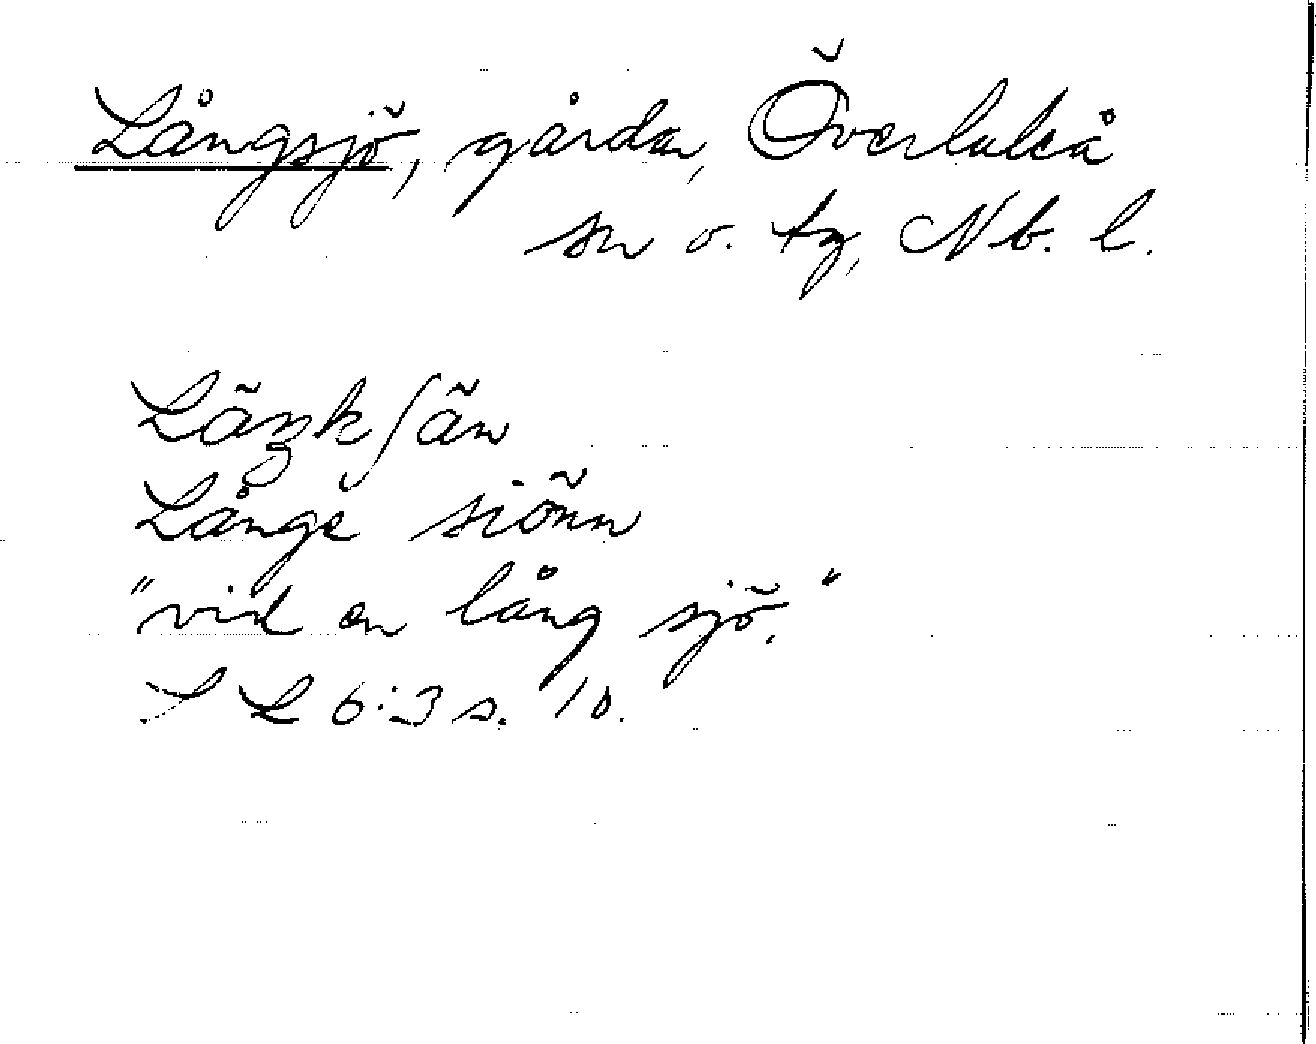 Långsjö, gårdar, Överluleå
sn o. tg, Nb. l.
Läŋkʃän
Långe siönn
"vid en lång sjö."
S L 6:3 s. 10.